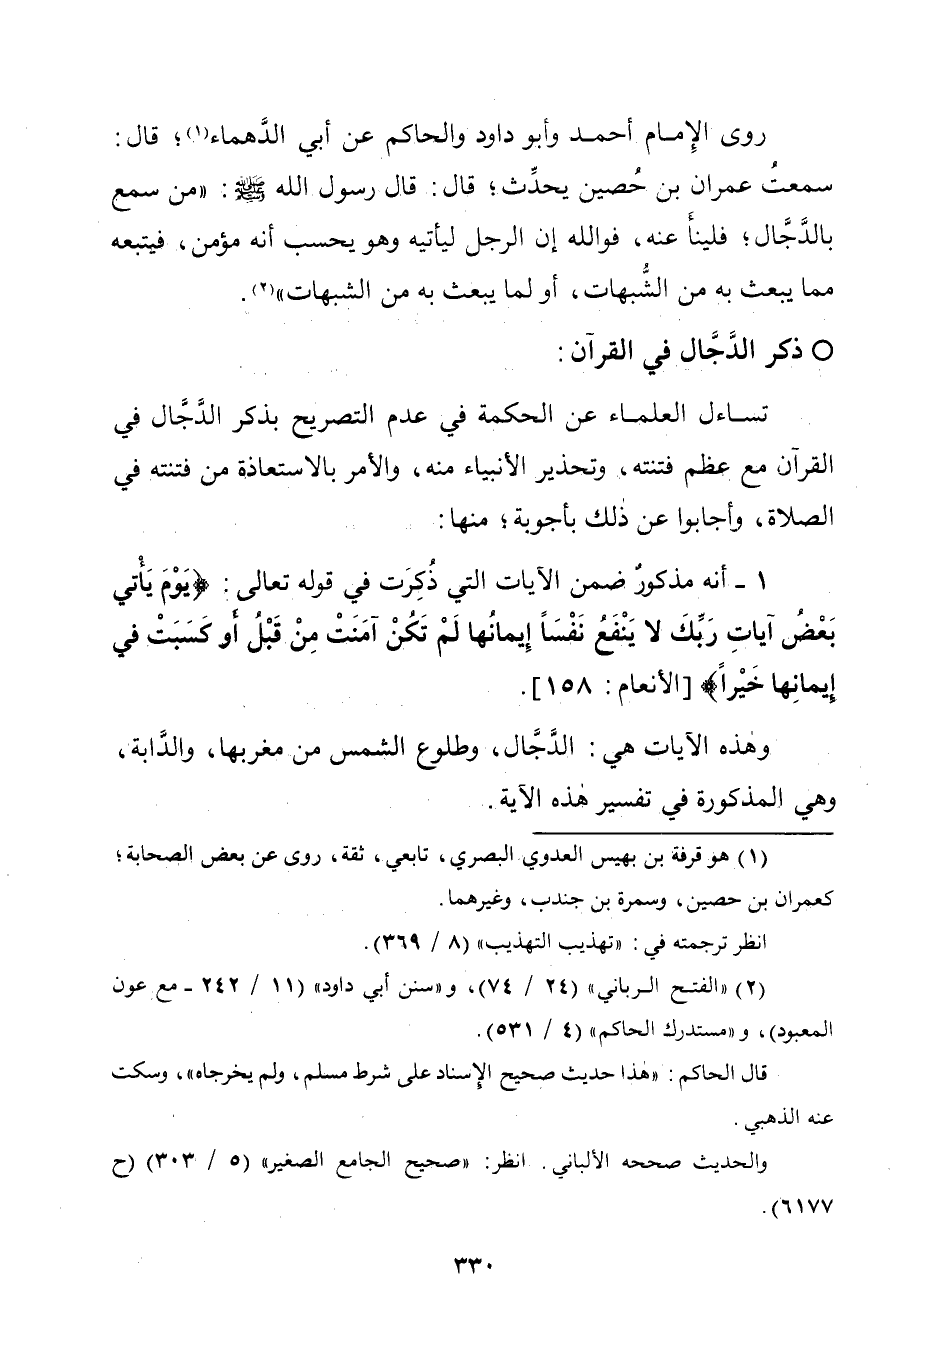 روى الإمام أحمد وأبو داود والحاكم عن أبي الدَّهماء(١)؛ قال:
سمعتُ عمران بن حُصين يحدِّث؛ قال: قال رسول الله ﷺ: «من سمع
بالدَّجَّال؛ فلينأ عنه، فوالله إن الرجل ليأتيه وهو يحسب أنه مؤمن، فيتبعه
مما يبعث به من الشُّبهات، أو لما يبعث به من الشبهات»(٢).
○ ذكر الدَّجَّال في القرآن:
تساءل العلماء عن الحكمة في عدم التصريح بذكر الدَّجَّال في
القرآن مع عظم فتنته، وتحذير الأنبياء منه، والأمر بالاستعاذة من فتنته في
الصلاة، وأجابوا عن ذٰلك بأجوبة؛ منها:
١ ـ أنه مذكورٌ ضمن الآيات التي ذُكِرَت في قوله تعالى: ﴿يَوْمَ يَأْتي
بَعْضُ آياتِ رَبِّكَ لا يَنْفَعُ نَفْسَاً إيمانُها لَمْ تَكُنْ آمَنَتْ مِنْ قَبْلُ أَو كَسَبَتْ في
إيمانِها خَيْراً﴾ [الأنعام: ١٥٨].
وهٰذه الآيات هي: الدَّجَّال، وطلوع الشمس من مغربها، والدَّابة،
وهي المذكورة في تفسير هٰذه الآية.
(١) هو قرفة بن بهيس العدوي البصري، تابعي، ثقة، روى عن بعض الصحابة؛
كعمران بن حصين، وسمرة بن جندب، وغيرهما.
انظر ترجمته في: «تهذيب التهذيب» (٨ / ٣٦٩).
(٢) «الفتح الرباني» (٢٤ / ٧٤)، و«سنن أبي داود» (١١ / ٢٤٢ ـ مع عون
المعبود)، و«مستدرك الحاكم» (٤ / ٥٣١).
قال الحاكم: «هٰذا حديث صحيح الإسناد على شرط مسلم، ولم يخرجاه»، وسكت
عنه الذهبي.
والحديث صححه الألباني. انظر: «صحيح الجامع الصغير» (٥ / ٣٠٣) (ح
٦١٧٧).
٣٣٠